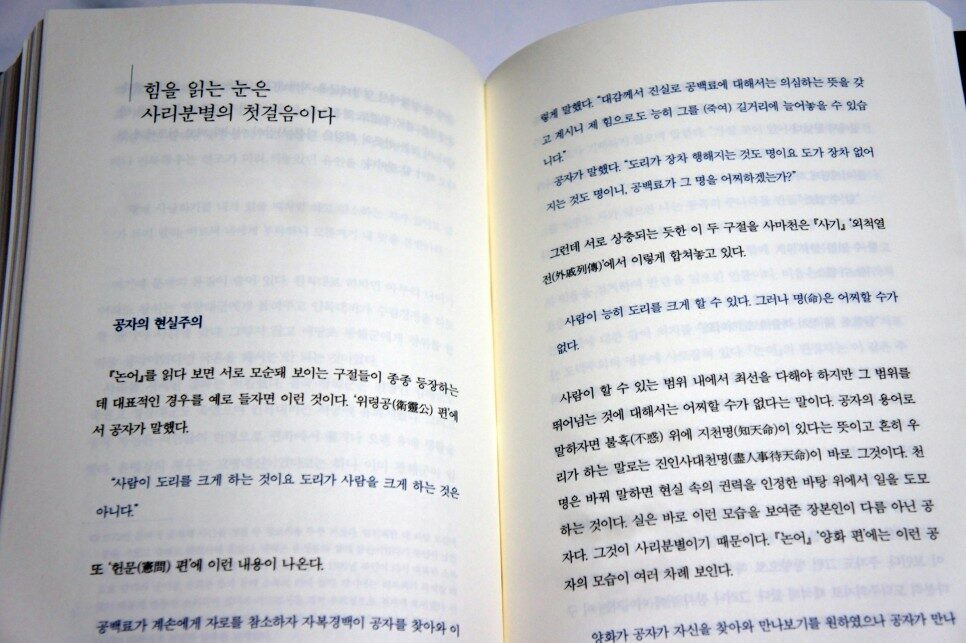 힘을 읽는 눈은
사리분별의 첫걸음이다
공자의 현실주의
『논어』를 읽다 보면 서로 모순돼 보이는 구절들이 종종 등장하는
데 대표적인 경우를 예로 들자면 이런 것이다. ‘위령공(衛靈公) 편’에
서 공자가 말했다.
“사람이 도리를 크게 하는 것이요 도리가 사람을 크게 하는 것은
아니다.”
또 ‘헌문(憲問) 편’에 이런 내용이 나온다.
공백료가 계손에게 자로를 참소하자 자복경백이 공자를 찾아와 이
렇게 말했다. “대감께서 진실로 공백료에 대해서는 의심하는 뜻을 갖
고 계시니 제 힘으로도 능히 그를 (죽여) 길거리에 늘어놓을 수 있습
니다.”
공자가 말했다. “도리가 장차 행해지는 것도 명이요 도가 장차 없어
지는 것도 명이니, 공백료가 그 명을 어찌하겠는가?”
그런데 서로 상충되는 듯한 이 두 구절을 사마천은 『사기』 ‘외척열
전(外戚列傳)’에서 이렇게 합쳐놓고 있다.
사람이 능히 도리를 크게 할 수 있다. 그러나 명(命)은 어찌할 수가
없다.
사람이 할 수 있는 범위 내에서 최선을 다해야 하지만 그 범위를
뛰어넘는 것에 대해서는 어찌할 수가 없다는 말이다. 공자의 용어로
말하자면 불혹(不惑) 위에 지천명(知天命)이 있다는 뜻이고 흔히 우
리가 하는 말로는 진인사대천명(盡人事待天命)이 바로 그것이다. 천
명은 바꿔 말하면 현실 속의 권력을 인정한 바탕 위에서 일을 도모
하는 것이다. 실은 바로 이런 모습을 보여준 장본인이 다름 아닌 공
자다. 그것이 사리분별이기 때문이다. 『논어』 ‘양화 편’에는 이런 공
자의 모습이 여러 차례 보인다.
양화가 공자가 자신을 찾아와 만나보기를 원하였으나 공자가 만나